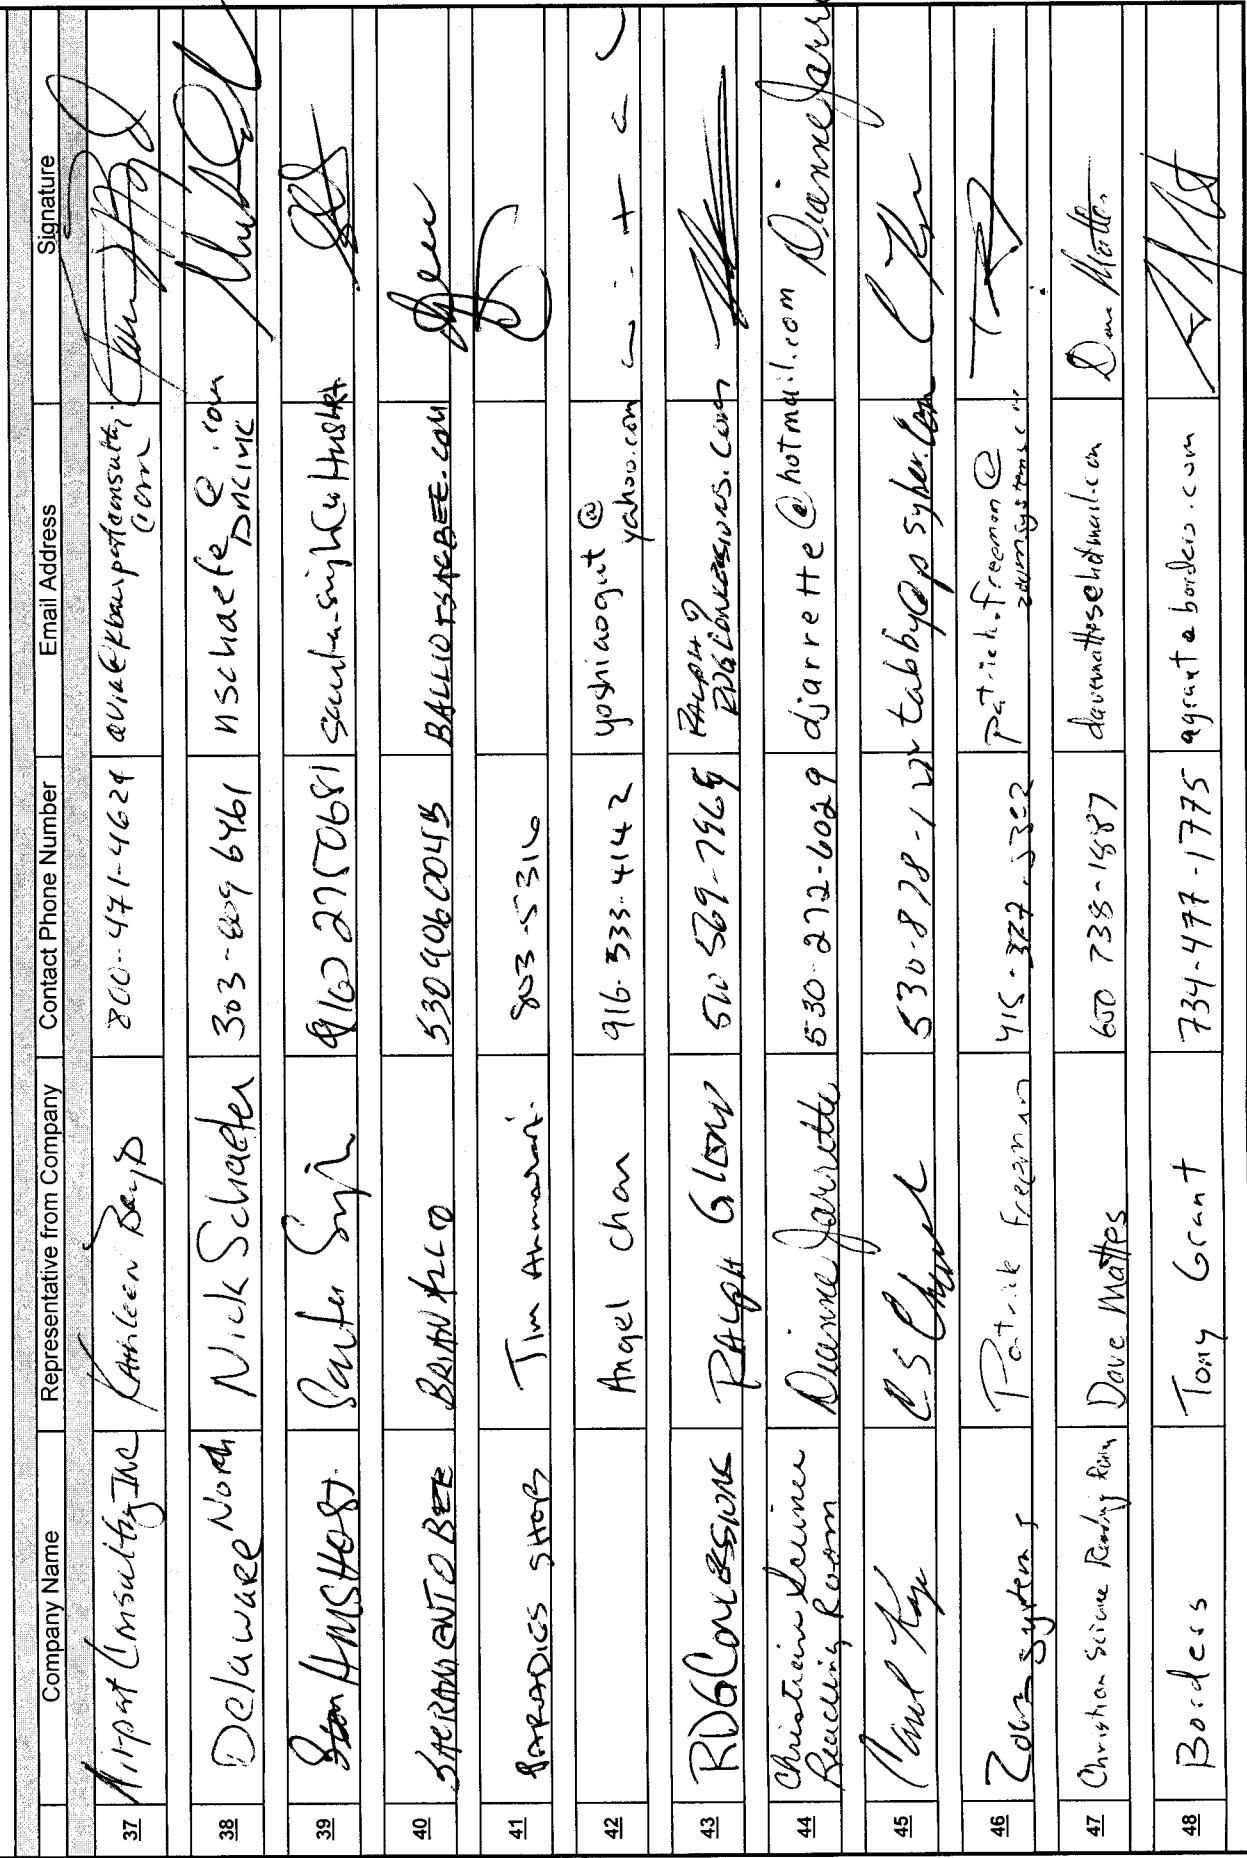 Company Name Representative from Company Contact Phone Number Email Address Signature
37 Airport Consulting Inc Kathleen 800-471-4624
38 Delaware North Nick Schaefer 303-609 6461 nschaefe@dncinc.com
39 HMSHost. 916 2750681
40 SACRAMENTO BEE BRIAN 5309060045 BALLIOTSACBEE.COM
41 PARADIES SHOPS Tim 803-5316
42 Angel Chan 916-533-4142 yoshiaogut@
yahoo.com
43 RDG Concessions RALPH 510 569-7969 RALPH@
RDGCONCESSIONS.COM
44 Christian Science
Reading Room Dianne Jarrette 530-272-6029 djarrette@hotmail.com Dianne Jarre
45 530-878- tabby@psyber.com
46 Zoom Systems Patrick Freeman 415- Patrick.Freeman@
zoomsystems.com
47 Christian Science Reading Room Dave Mattes 650 738-1887 davemattes@hotmail.com Dave Mattes
48 Borders Tony Grant 734-477-1775 agrantaborders.com